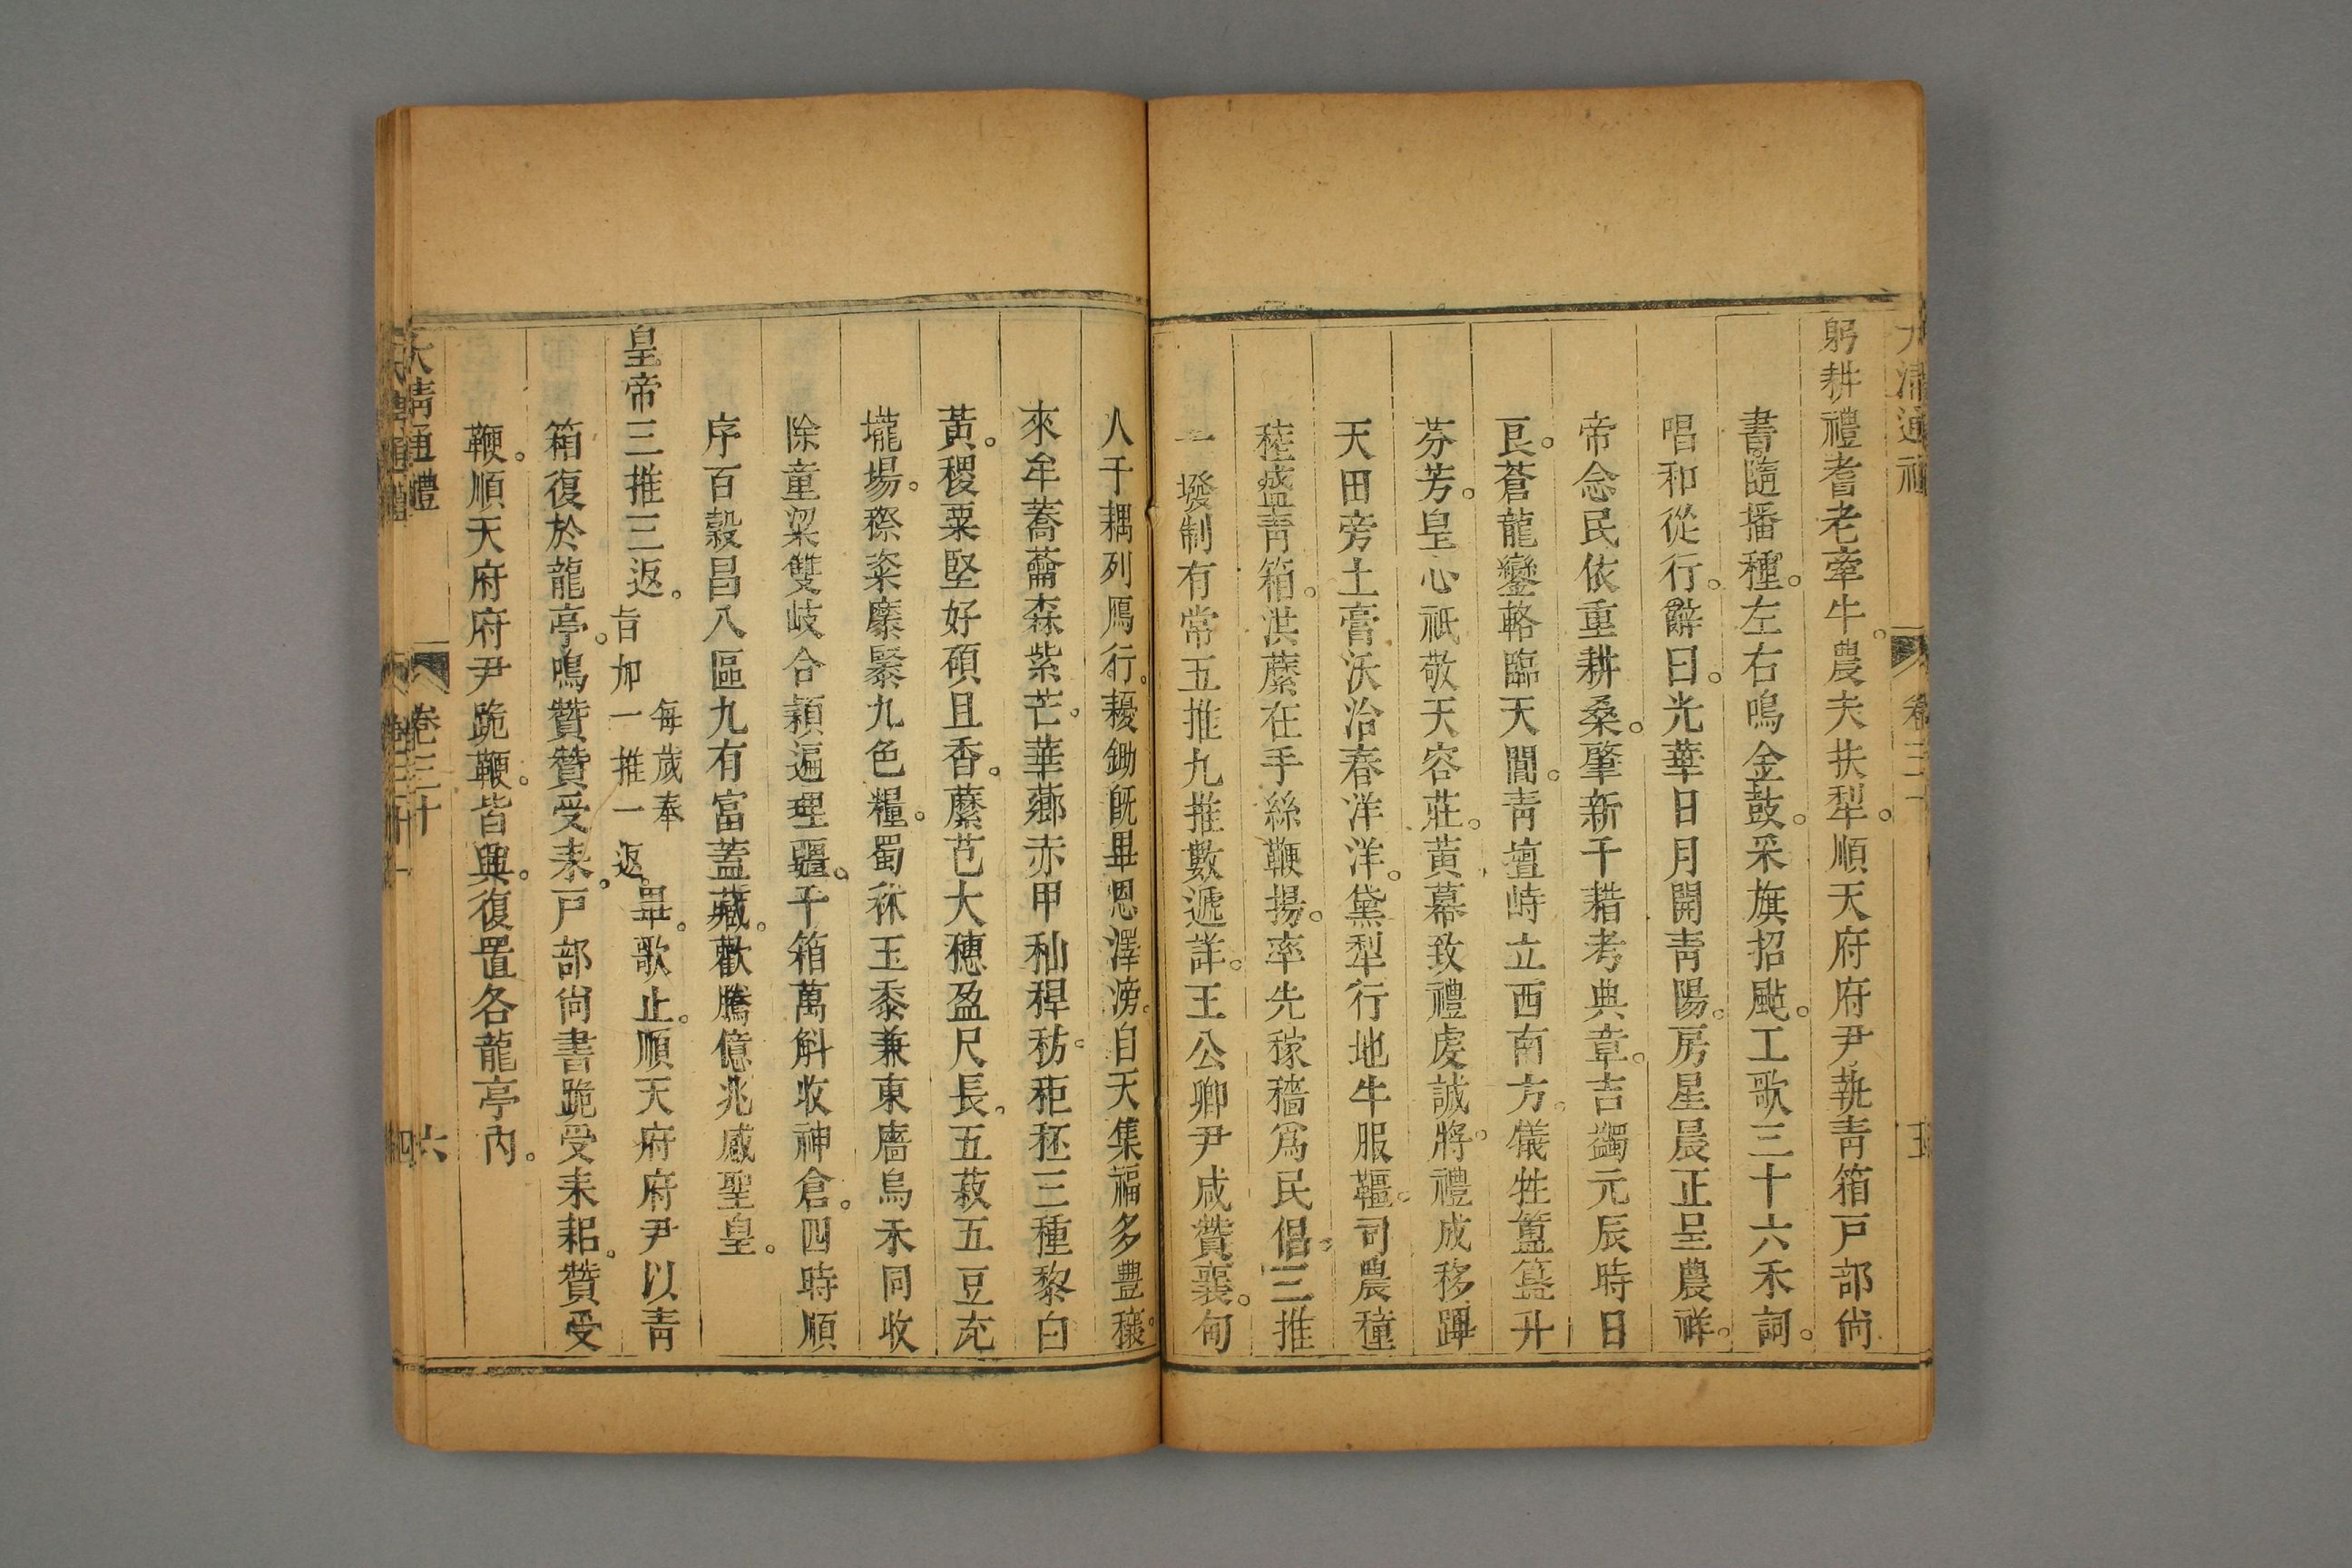 大清通禮 卷三十 五
躬耕禮耆老牽牛。農夫扶犁。順天府府尹執青箱戸部尙
書隨播種。左右鳴金鼓。采旗招颭。工歌三十六禾詞。
唱和從行。辭曰。光華日月開青陽。房星晨正呈農祥。
帝念民依重耕桑。肇新千耤考典章。吉蠲元辰時日
良。蒼龍鑾輅臨天閶。青壇峙立西南方。儀牲簠簋升
芬芳。皇心祇敬天容莊。黃幕致禮虔誠將。禮成移蹕
天田旁土膏沃洽春洋洋。黛犁行地牛服韁。司農穜
稑盛青箱。洪縻在手絲鞭揚。率先稼穡爲民倡。三推
一墢制有常五推九推數遞詳。王公卿尹咸贊襄。甸
人千耦列鴈行。耰鋤旣畢恩澤滂。自天集福多豐穰。
來牟蕎䕲森紫芒。華薌赤甲秈稈秔。秬秠三種黎白
黃。稷粟堅好碩且香。穈芑大穗盈尺長。五菽五豆充
壠場。穄粢縻䵖九色糧。蜀秫玉黍兼東廧烏禾同收
除童粱雙岐合穎遍理疆。千箱萬斛收神倉。四時順
序百穀昌八區九有富蓋藏。歡騰億兆感聖皇。
皇帝三推三返。每歲奉
旨加一推一返。畢。歌止。順天府府尹以青
箱復於龍亭。鳴贊贊受耒。戸部尙書跪受耒耜。贊受
鞭。順天府府尹跪鞭。皆興。復置各龍亭內。
大清通禮 卷三十 六